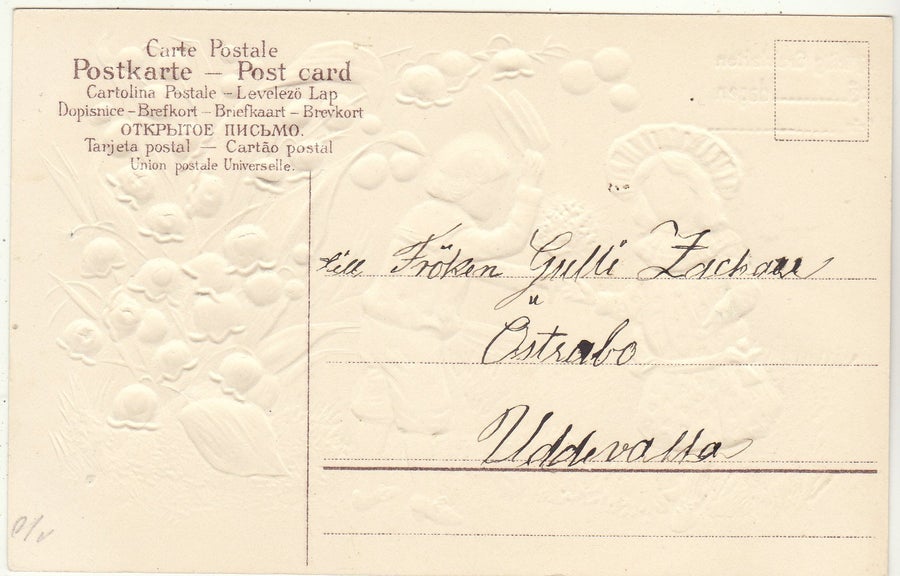 Carte Postale
Postkarte — Post card
Cartolina Postale – Levelező Lap
Dopisnice – Brefkort – Briefkaart – Brevkort
ОТКРЫТОЕ ПИСЬМО.
Tarjeta postal — Cartão postal
Union postale Universelle.
till Fröken Gulli Zachau
Östrabo
Uddevalla